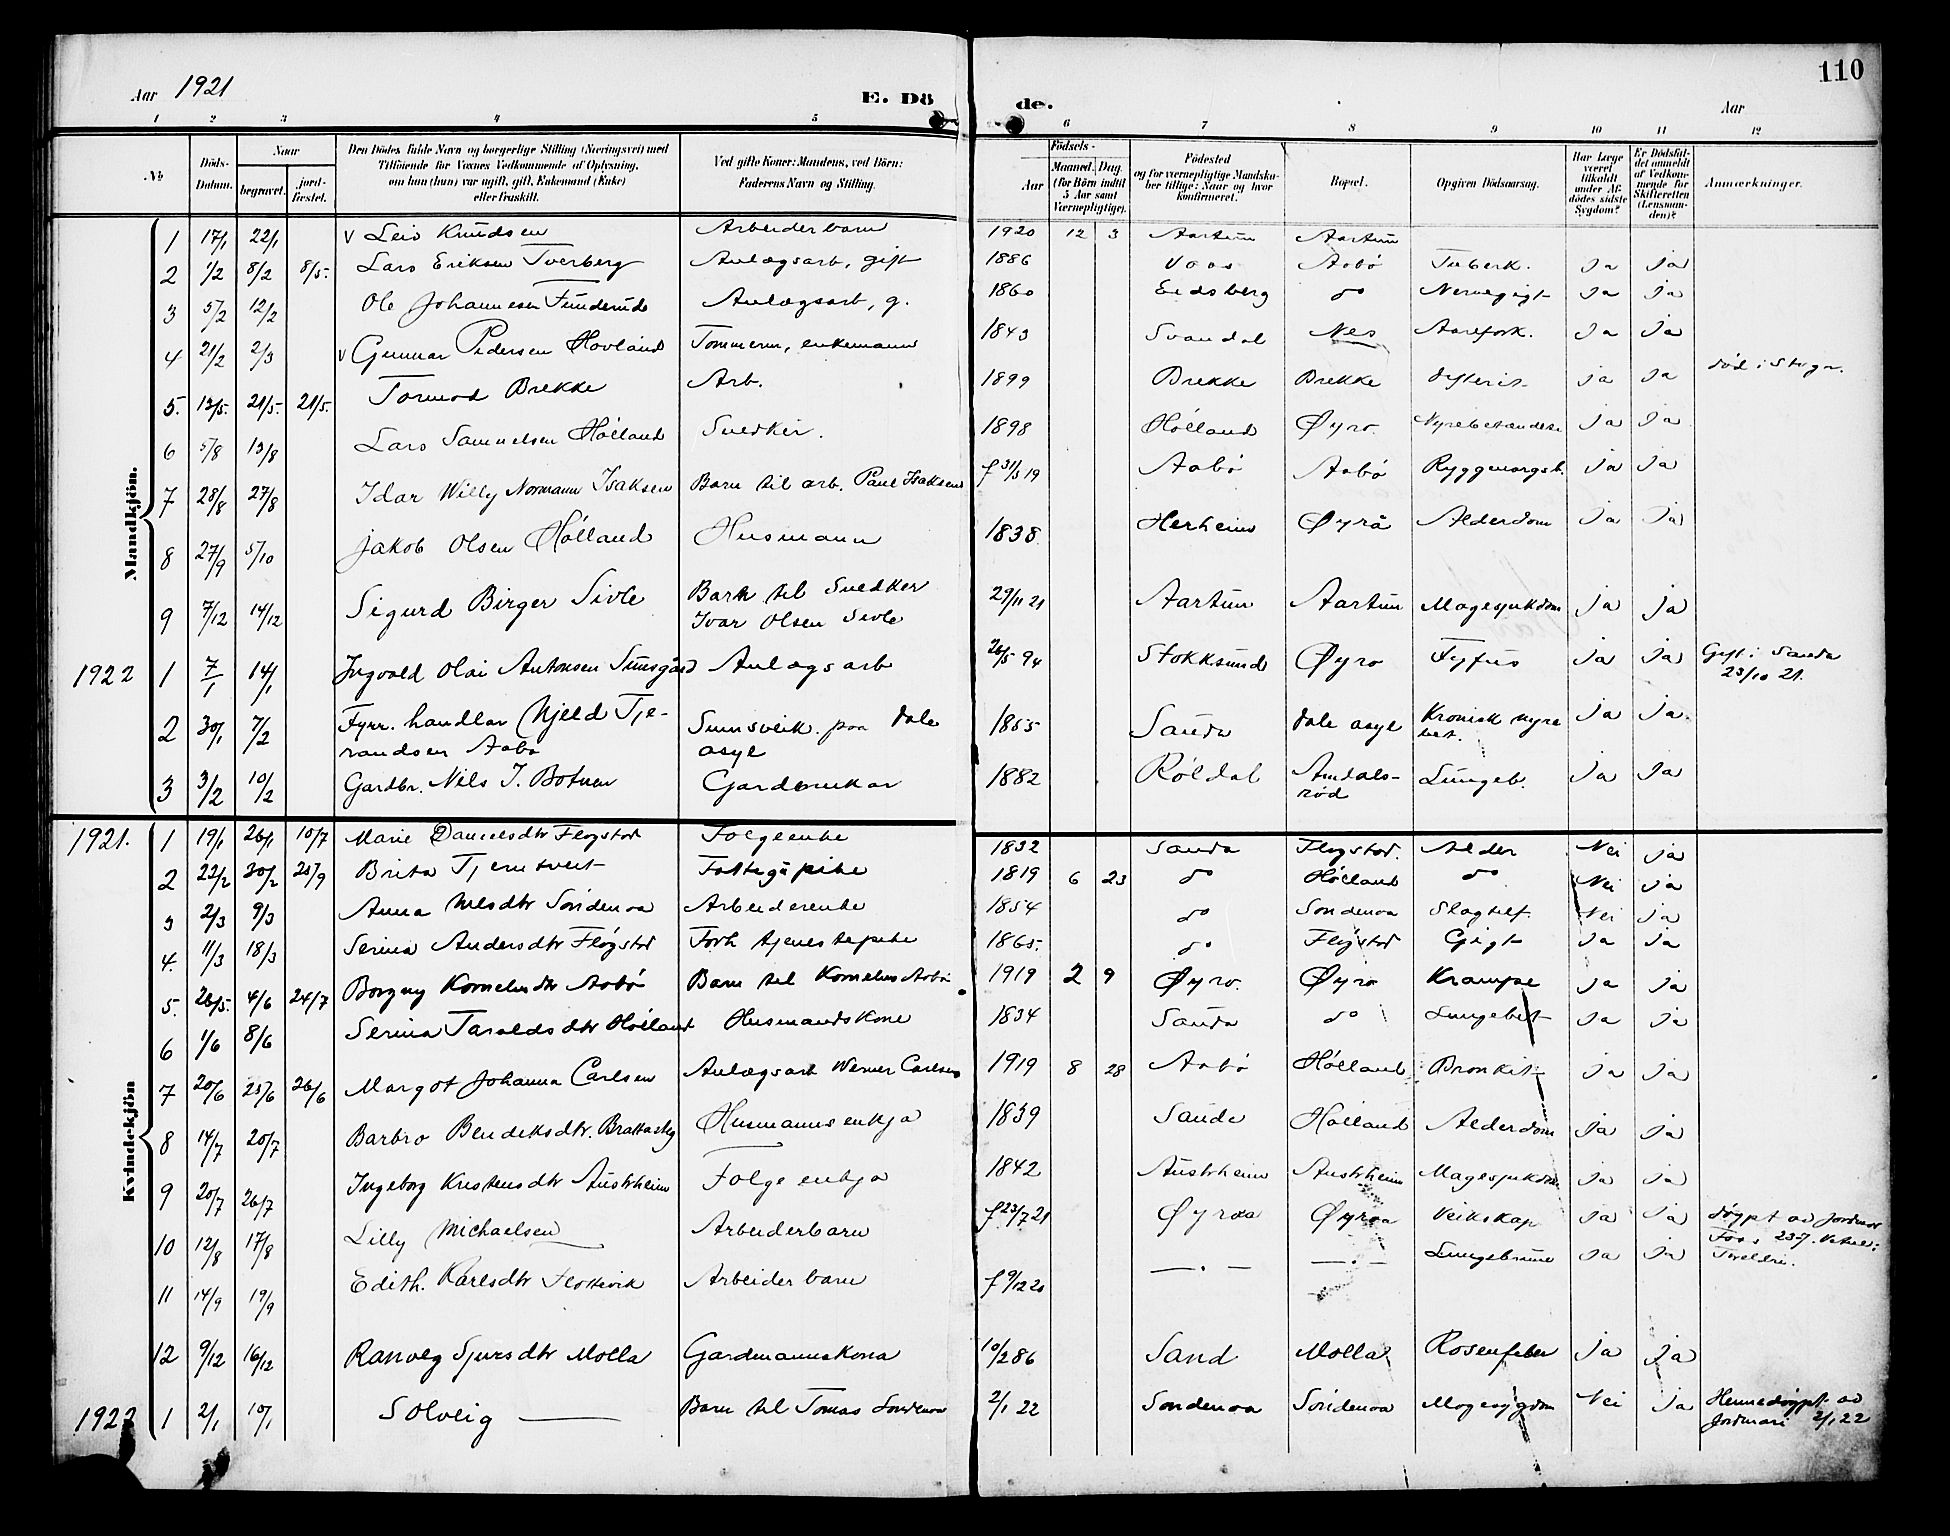 110
Aar 1921
E. Dö
de.
Aar
1 2 3 4 5 6 7 8 9 10 11 12
№
Döds-Datum.
Naar
begravet.
jord-fæstet.
Den Dödes fulde Navn og borgerlige Stilling (Næringsvei) med Tilföiende for Voxnes Vedkommende af Oplysning, om han (hun) var ugift, gift, Enkemand (Enke) eller fraskilt.
Ved gifte Koner: Mandens, ved Börn: Faderens Navn og Stilling.
Födsels-
Aar
Maaned. Dag.
(for Börn indtil 5 Aar samt Værnepligtige).
Födested og for værnepligtige Mandskaber tillige: Naar og hvor konfirmeret.
Bopæl.
Opgiven Dödsaarsag.
Har Læge været tilkaldt under Afdödes sidste Sygdom?
Er Dödsfaldet anmeldt af Vedkommende for Skifteretten (Lensmanden)?
Anmærkninger.
Mandkjön.
1 17/1 22/1 v Leiv Knudsen Arbeiderbarn 1920 12 3 Aartun Aartun
2 1/2 8/2 8/5. Lars Eriksen Tverberg Anlægsarb, gift 1886 Voss Aabö Tuberk. Ja Ja
3 5/2 12/2 Ole Johannesen Funderud Anlægsarb, g. 1860 Eidsberg do Nervegigt Ja Ja
4 21/2 2/3 v Gunnar Pedersen Hovland Tømmerm, enkemann 1843 Svandal Nes Aarefork. Ja Ja
5. 13/5. 21/5. 21/5. Tormod Brekke Arb. 1899 Brekke Brekke difterit Ja Ja død i Stogn.
6 5/8 13/8 Lars Samuelsen Hölland Snedker. 1898 Hölland Øyro Nyrebetændelse Ja Ja
7 23/8 27/8 Idar Willy Normann Isaksen Barn til arb. Paul Isaksen f 31/3 19 Aabö Aabö Ryggmargsb. Ja Ja
8 27/9 5/10 Jakob Olsen Hölland Husmann 1838 Herheim Øyrå Alderdom Ja Ja
9 7/12 14/12 Sigurd Birger Sivle Barn til Snedker
Ivar Olsen Sivle 29/11 21 Aartun Aartun Magesjukdom Ja Ja
1922 1 7/1 14/1 Ingvald Olai Antonsen Sunsgård Anlægsarb 26/5 94 Stokksund Øyro Tyfus Ja Ja Gift i Sauda
23/10 21.
2 30/1 7/2 Fyrr. handlar Kjeld Tje-
randsen Aabö Sinnsveik. paa Dale
asyl 1855 Sauda Dale asyl Kronisk nyre
bet. Ja Ja
3 3/2 10/2 Gardbr. Nils J. Botnen Gardbrukar 1882 Röldal Amdals-
rød Lungeb. Ja Ja
Kvindekjön
1921. 1 19/1 26/1 10/7 Marie Danielsdtr Fløgstod Folgeenke 1832 Sauda Flogstod. Alder Nei Ja
2 22/2 30/2 25/9 Brita Tjemtveit Fattigpike 1819 6 23 do Hölland do Nei Ja
3 2/3 9/3 Anna Nilsdtr Söndenaa Arbeiderenke 1854 do Söndenaa Slagtilf. Nei Ja
4. 11/3 18/3 Serina Andersdtr Flögstod Forh tjenestepike 1865. do Flögstod Gigt Ja Ja
5. 26/5. 4/6 24/7 Borgny Korneliusdtr Aabö Barn til Kornelius Aabö 1919 2 9 Øyro. Øyro Krampe Ja Ja
6 1/6 8/6 Serina Taraldsdtr Hölland Husmandskone 1834 Sauda do Lungebet Ja Ja
7 20/6 25/6 26/6 Margot Johanna Carlsen Anlægsarb Werner Carlsen 1919 8 28 Aabö Hölland Bronkit Ja Ja
8 14/7 20/7 Barbro Bendiksdtr. Brattasteg Husmannsenkja 1839 Sauda Hölland Alderdom Ja Ja
9 20/7 26/7 Ingeborg Kristensdtr Austrheim Folgeenkja 1842 Austrheim Austrheim Magesjukdom Ja Ja
10 12/8 17/8 Lilly Michaelsen Arbeiderbarn f 23/7 21 Øyraa Øyraa Veikskap Ja Ja døypt av Jordmor
11 14/9 19/9 Edith Karlsdtr Arbeiderbarn f 9/12 20 — . — — . — Ja Ja
12 9/12 16/12 Ranveig Sjursdtr Molla Gardmannskona 10/2 86 Sand Molla Rosenfeber Ja Ja
1922 1 2/1 10/1 Solveig — Barn til Tomas Söndenaa 2/1 22 Söndenaa Söndenaa Magesygdom Nei Ja Hemmedøypt av
Jordmori 2/1 22